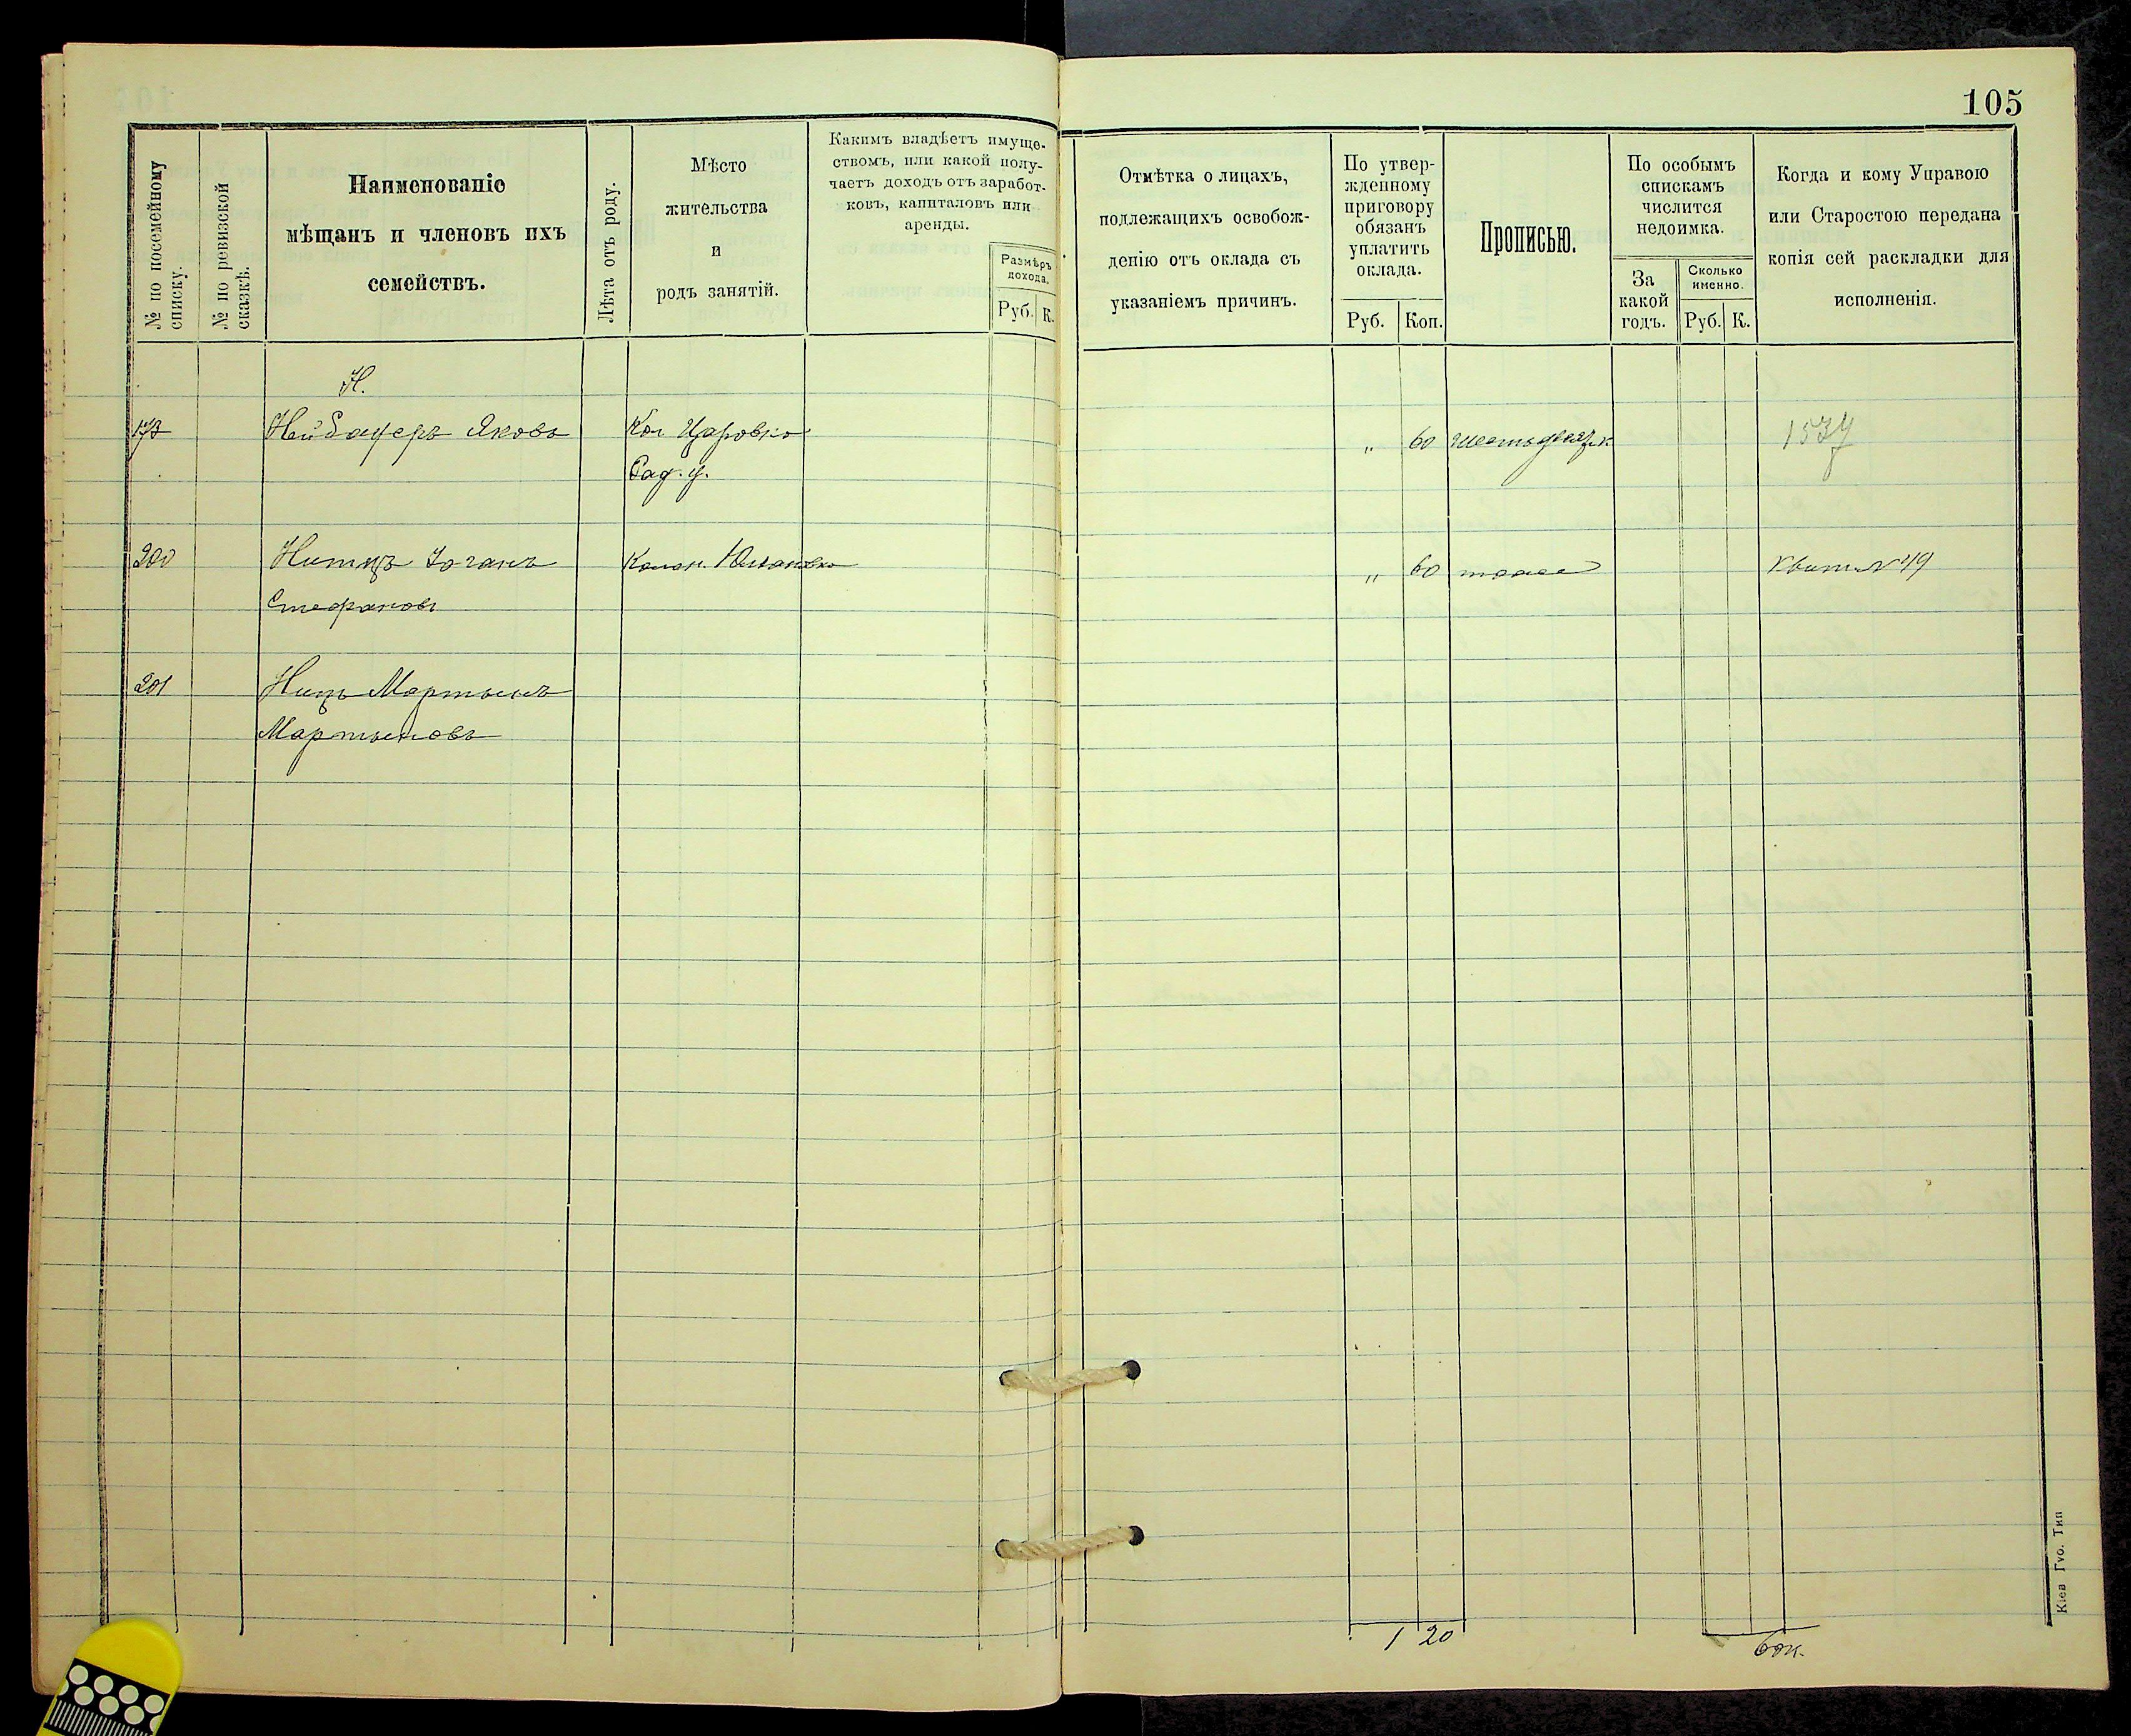 105
№ по посемейному
списку.
№ по ревизской
сказкѣ.
Наименованіе
мѣщанъ и членовъ ихъ
семействъ.
Лѣта отъ роду.
Мѣсто
жительства
и
родъ занятій.
Какимъ владѣетъ имуще-
ствомъ, или какой полу-
чаетъ доходъ отъ заработ-
ковъ, капиталовъ или
аренды.
Размѣръ
дохода.
Руб. К.
Отмѣтка о лицахъ,
подлежащихъ освобож-
денію отъ оклада съ
указаніемъ причинъ.
По утвер-
жденному
приговору
обязанъ
уплатить
оклада.
Руб. Коп.
Прописью.
По особымъ
спискамъ
числится
недоимка.
За
какой
годъ.
Сколько
именно.
Руб. К.
Когда и кому Управою
или Старостою передана
копія сей раскладки для
исполненія.
Н.
Нейбауеръ Яковъ Кол. " 60
Рад. у.
200 Нитцъ Іоганъ Колон. " 60 тоже Квит. № 49
Стефановъ
201 Ницъ Мартынъ
Мартыновъ
1 20
60к.
Кіев Гуо. Тип